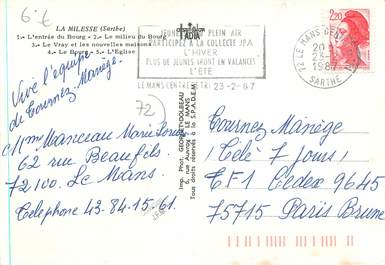 6.€
LA MILESSE (Sarthe)
1.- L'entrée du Bourg - 2.- Le milieu du Bourg
3.- Le Vray et les nouvelles maisons
4.- Le Bourg - 5.- L'Eglise
JEUNESSE PLEIN AIR
PARTICIPEZ A LA COLLECTE JPA
L'HIVER
PLUS DE JEUNES IRONT EN VACANCES
L'ETE
LE MANS CENTRE(CTR) 23-2-87
72 LE MANS CENTRE
20
23-2
1987
SARTHE
2,20
Vive l'équipe
de Tournez-Manège.
72
c/Mme Manceau Marie Louise
62 rue Beaufils
72100. Le Mans
Telephone 43.84.15.61.
Imp. Phot. GEORGES DOLBEAU
6, rue Auvray - LE MANS
Tous droits réservés à la S.P.A.D.E.M.
Tournez Manège
(Télé 7 jours)
TF1 Cedex 9645
75715 Paris Brune